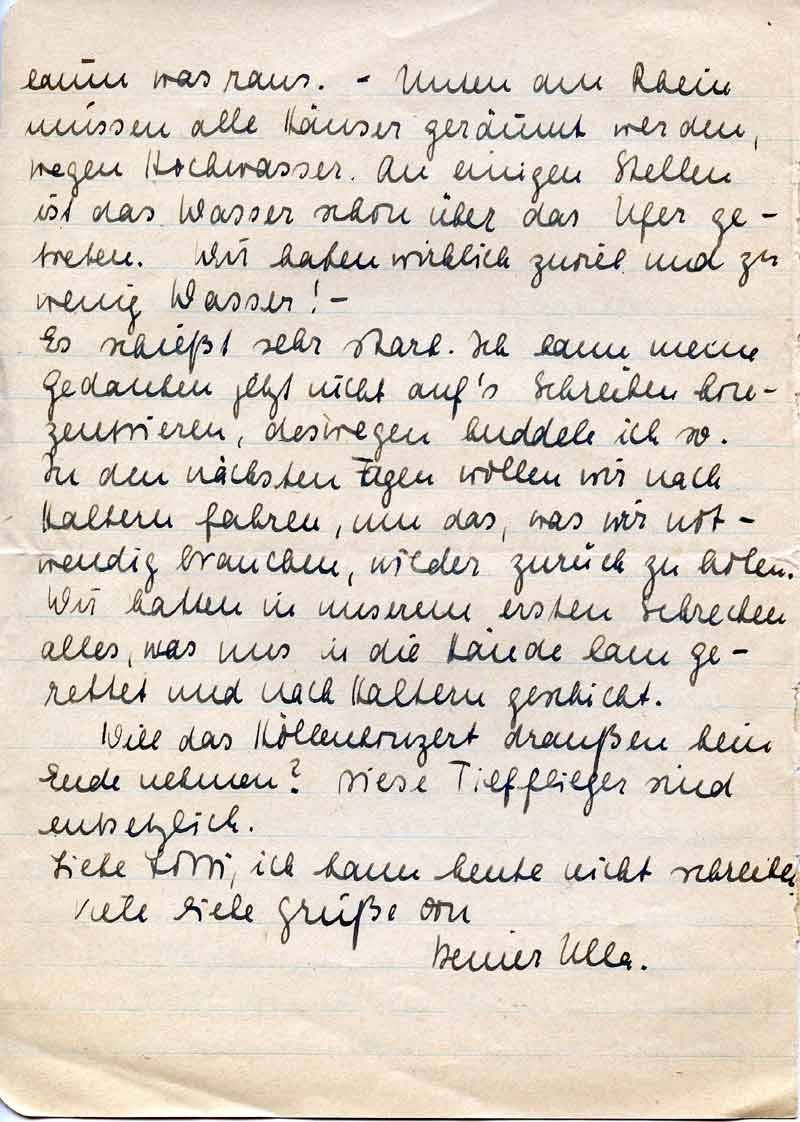 kaum was raus. – Unten am Rhein
müssen alle Häuser geräumt werden,
wegen Hochwasser. An einigen Stellen
ist das Wasser schon über das Ufer ge-
treten. Wir haben wirklich zuviel und zu
wenig Wasser! –
Es schießt sehr stark. Ich kann meine
Gedanken jetzt nicht auf's Schreiben kon-
zentrieren, deswegen huddele ich so.
In den nächsten Tagen wollen wir nach
Haltern fahren, um das, was wir not-
wendig brauchen, wieder zurück zu holen.
Wir hatten in unserem ersten Schrecken
alles, was uns in die Hände kam ge-
rettet und nach Haltern geschickt.
Will das Höllenkonzert draußen kein
Ende nehmen? Diese Tiefflieger sind
entsetzlich.
Liebe Lotti, ich kann heute nicht schreiben.
Viele liebe Grüße von
Deiner Ulla.